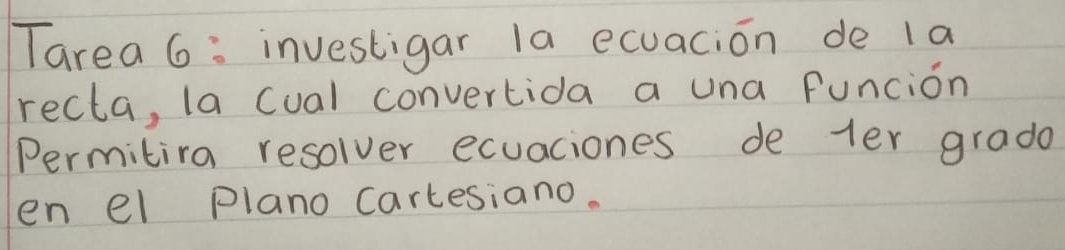 Tarea 6: investigar la ecuación de la
recta, la cual convertida a una función
Permitira resolver ecuaciones de 1er grado
en el Plano cartesiano.